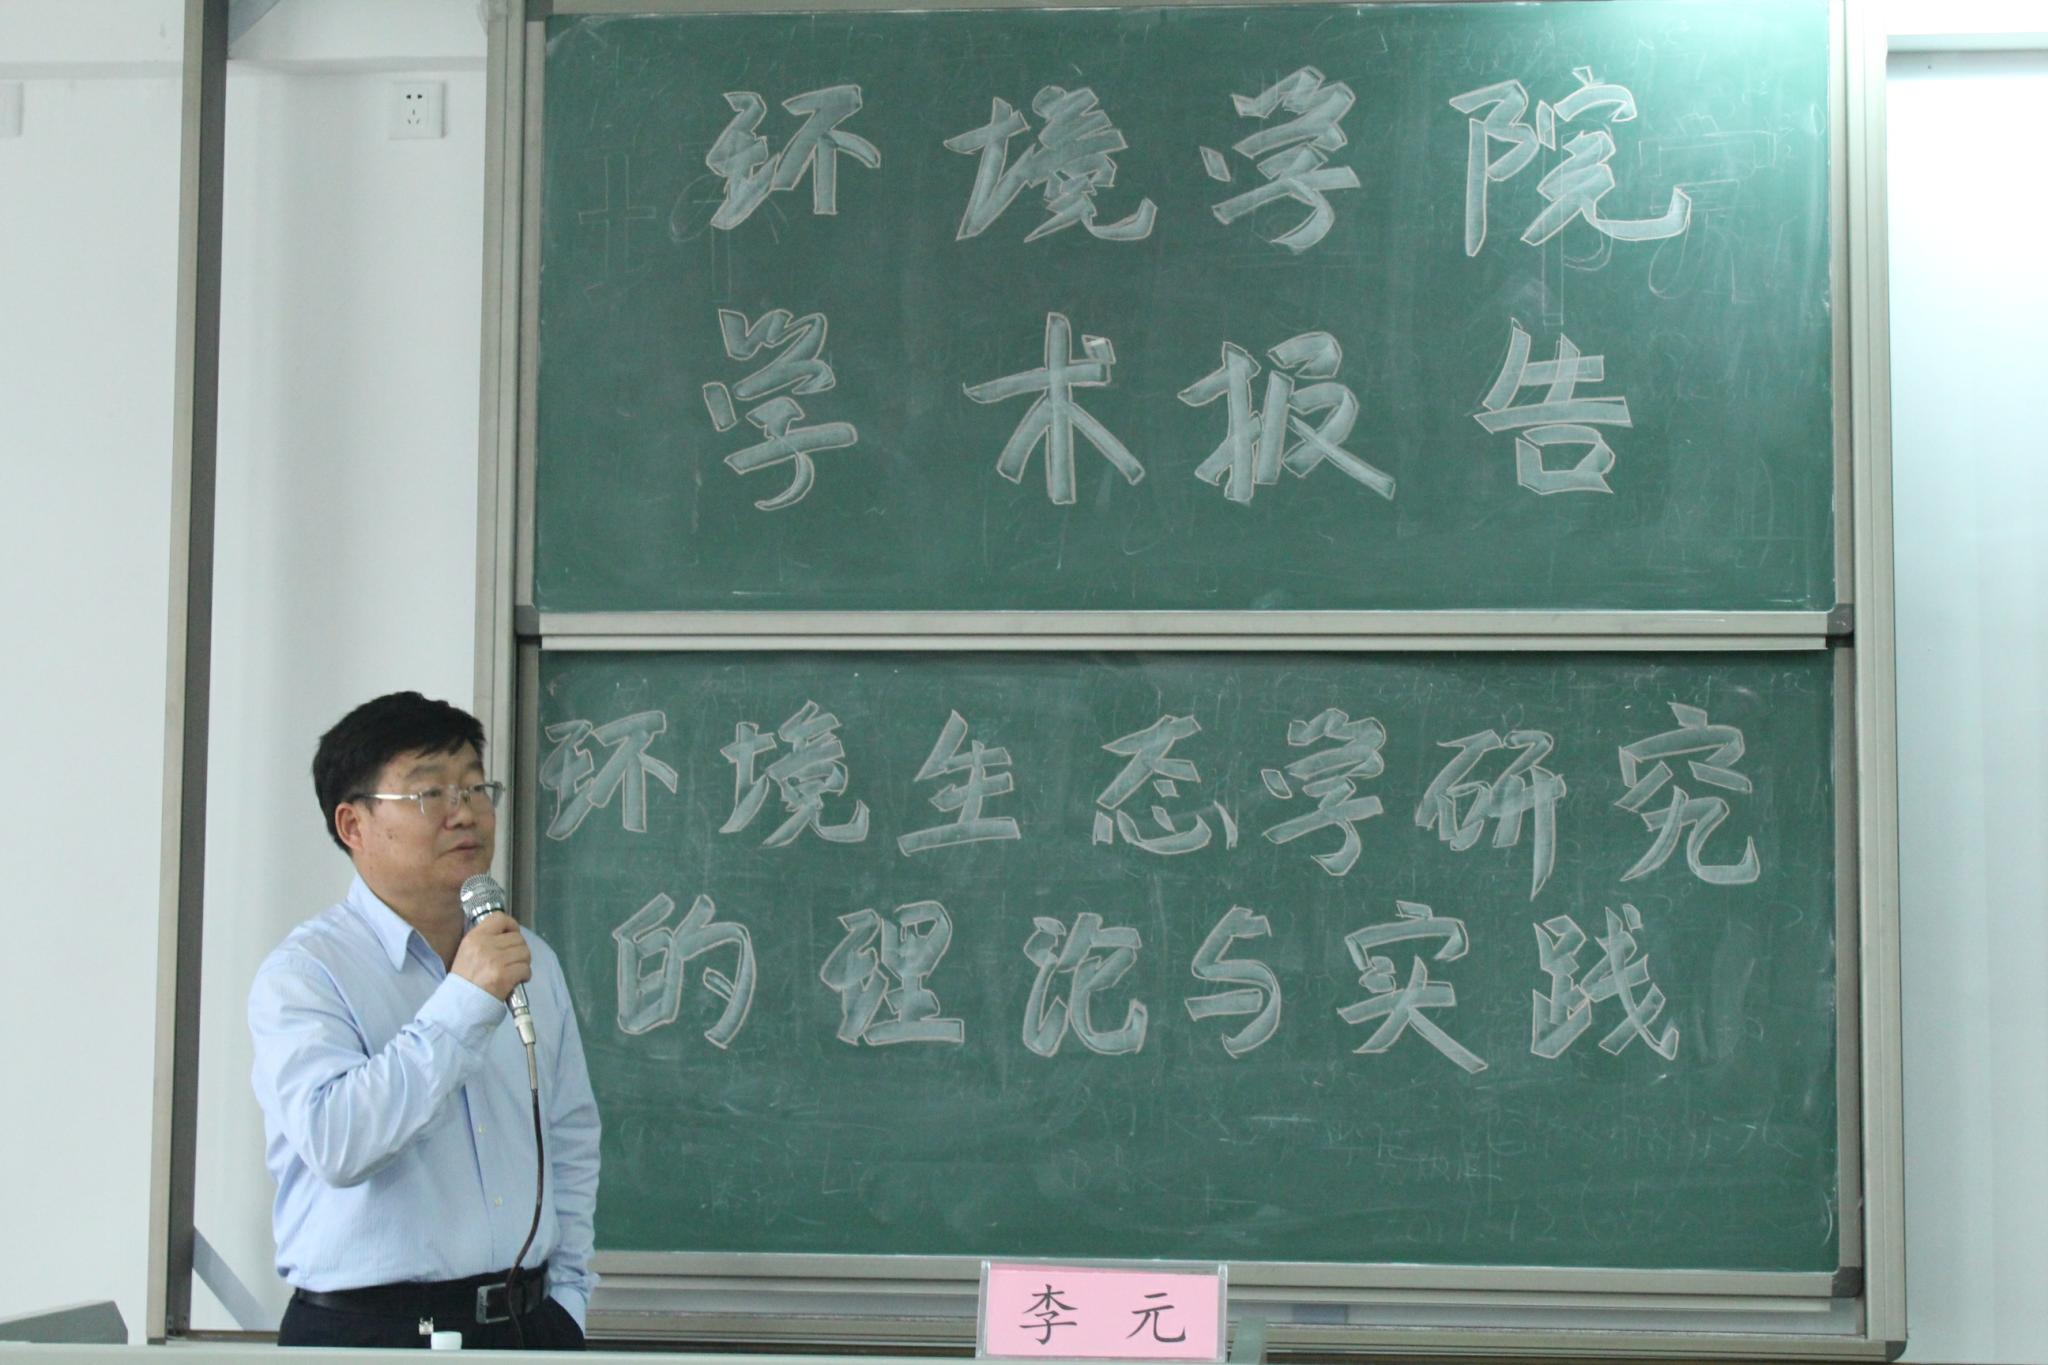 环境学院
学术报告
环境生态学研究
的理论与实践
李元